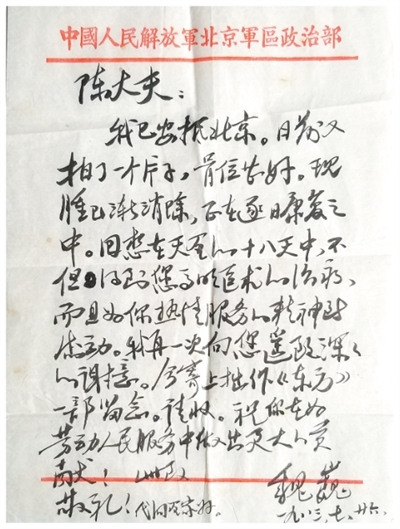 中國人民解放軍北京軍區政治部
陈大夫：
我已安抵北京。日前又
拍了一个片子，骨位甚好。现
肿已渐消除，正在逐日康复之
中。回想在天 的十八天中，不
但 得到您高明 的治疗，
而且如你热情服务的精神 
感动。我再一次向您道致深深
的谢意。今寄上拙作《东方》
一部留念。请收。祝您在为
劳动人民服务中做出更大的贡
献！ 此致
敬礼！ 代问 好。
魏巍
一九八三.七.廿六.